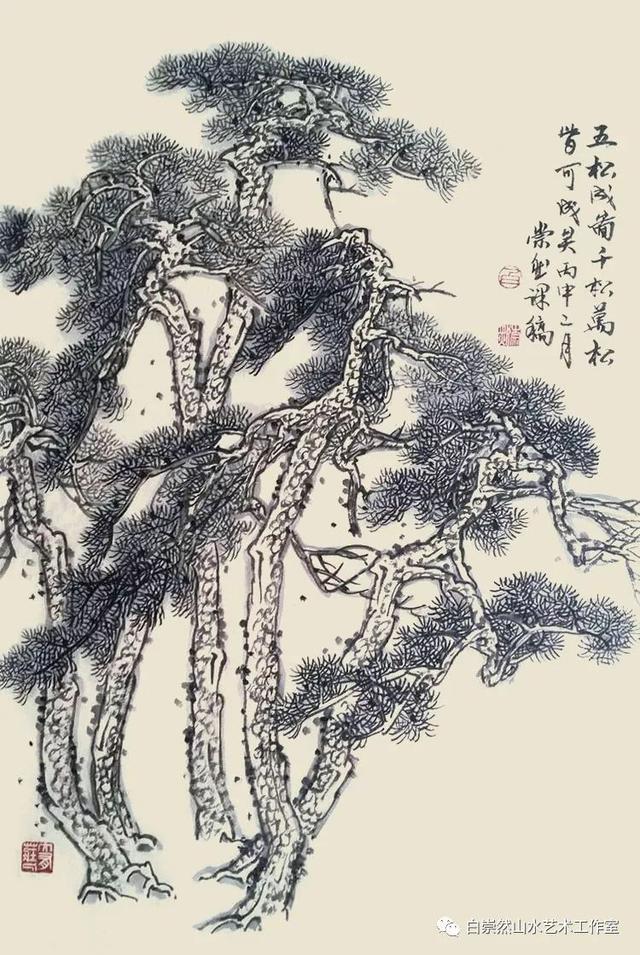 五松成千松萬松
皆可成矣丙申二月
崇然課稿
白崇然山水艺术工作室